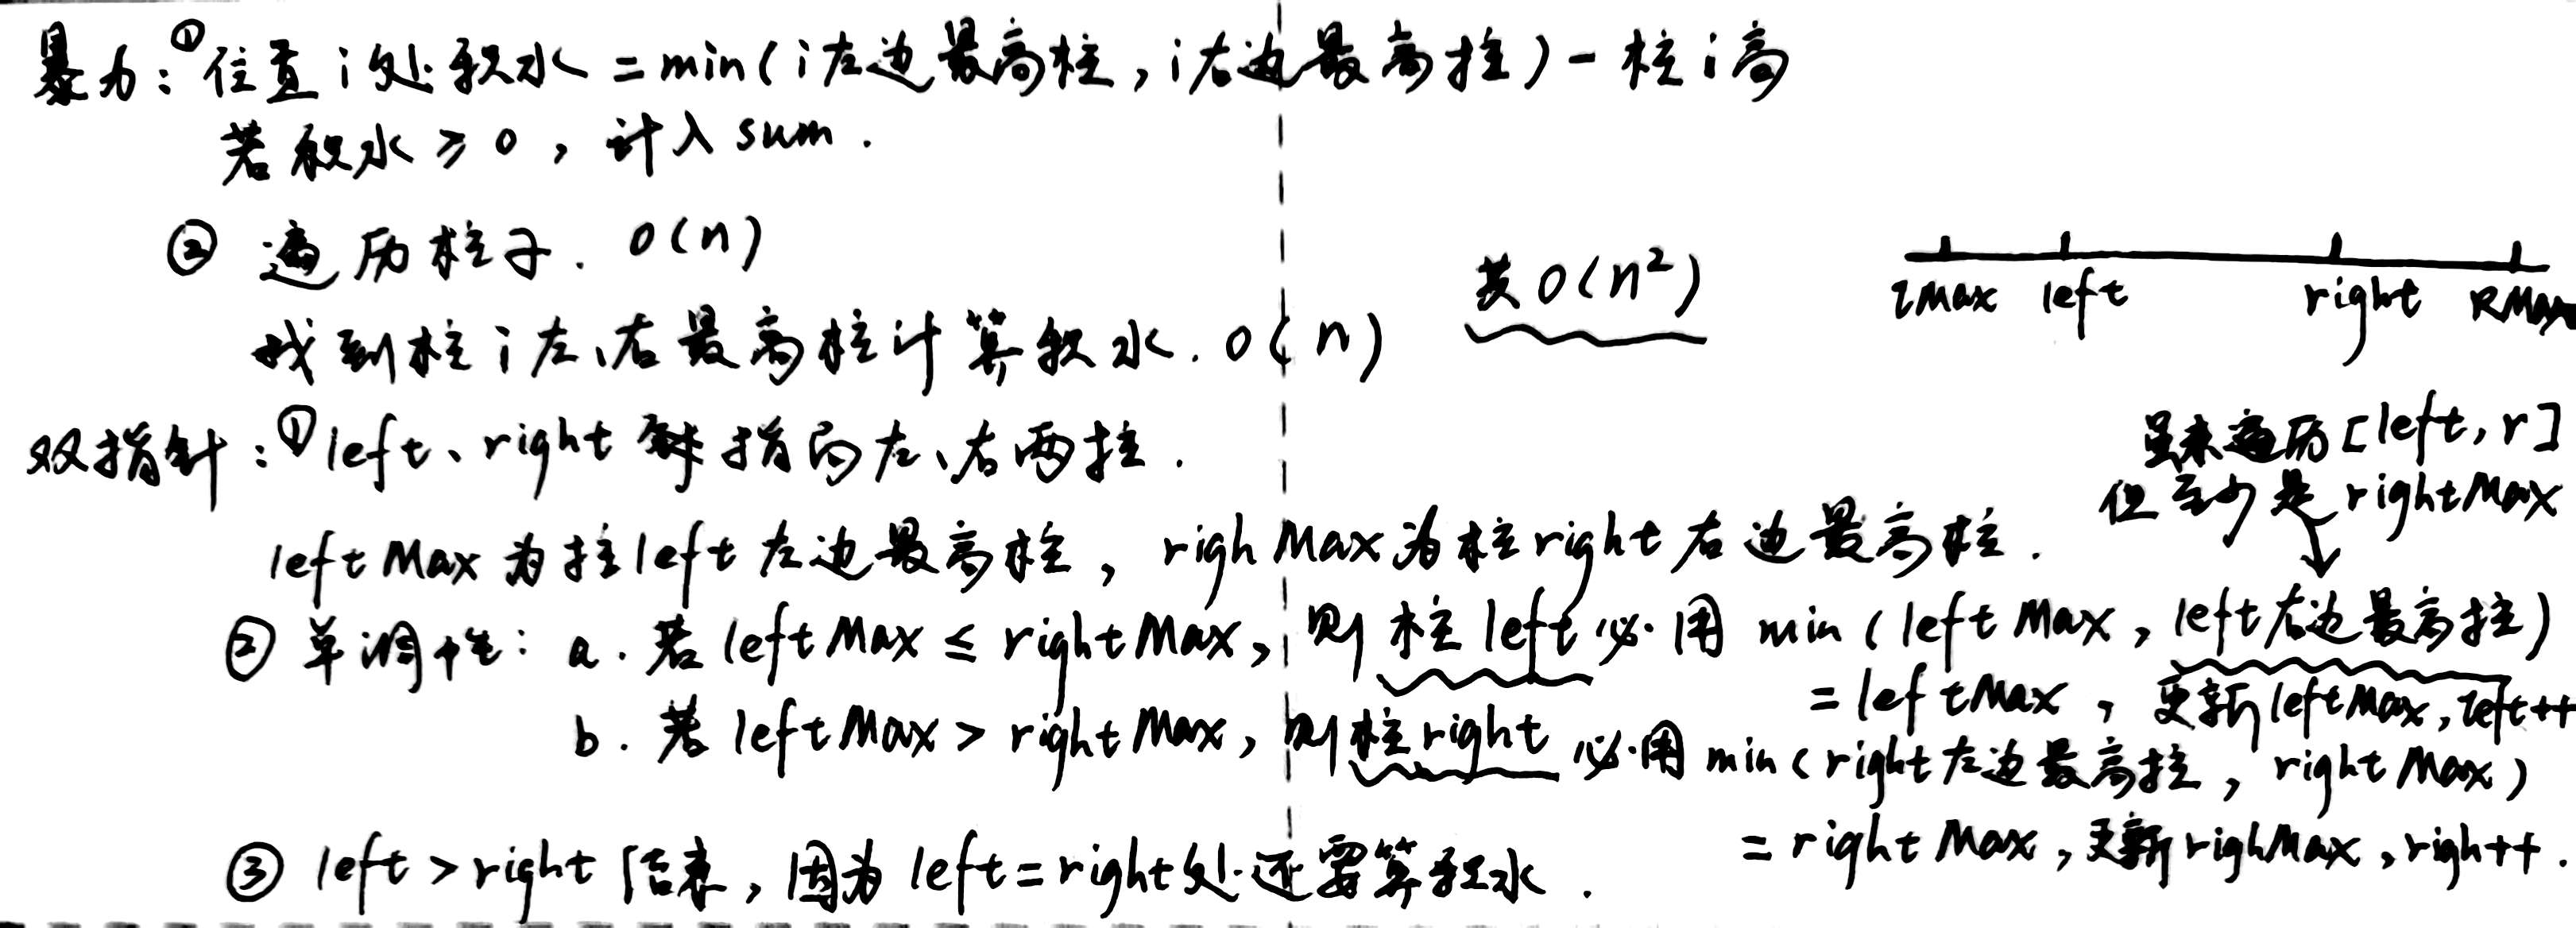 暴力：①位置i处积水 = min(i左边最高柱，i右边最高柱) - 柱i高
若积水 ≥ 0，计入 sum.
② 遍历柱子. O(n)
找到柱i左、右最高柱计算积水. O(n)
共 O(n²)
lMax left right RMax
双指针：①left、right 指向左、右两柱.
leftMax 为柱left左边最高柱，righMax为柱right右边最高柱.
虽未遍历[left, r]
但至少是rightMax
② 单调性: a. 若 leftMax ≤ rightMax，则 柱left 必用 min (leftMax，left右边最高柱)
= leftMax，更新leftMax, left++
b. 若 leftMax > rightMax，则柱right 必用 min (right左边最高柱，rightMax)
= rightMax，更新righMax，righ++.
③ left > right 结束，因为 left = right处还要算积水.